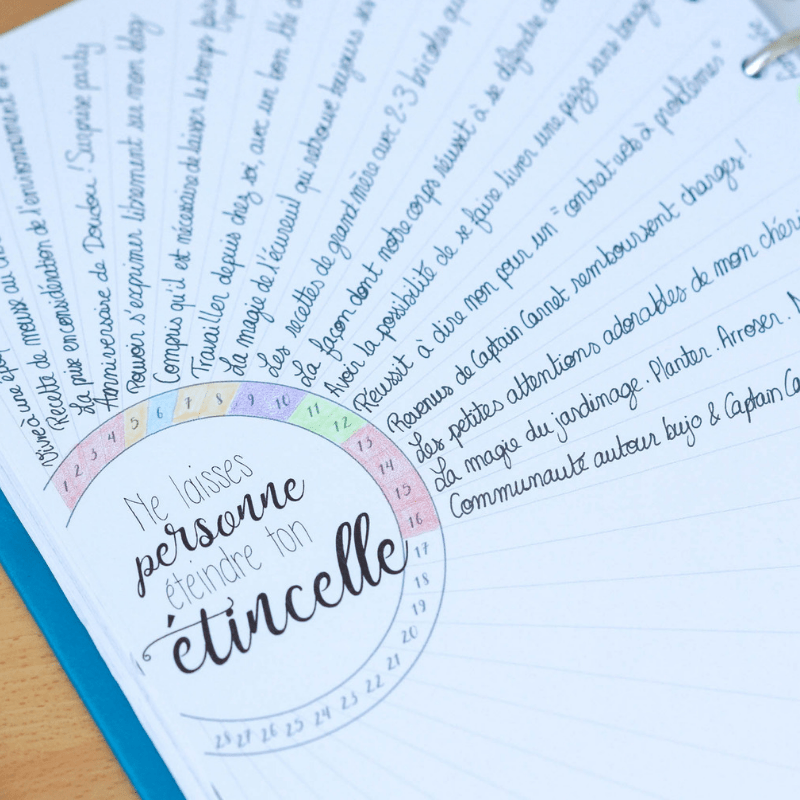 Vivre à une épo
Recette de mousse au cho
La prise en considération de l'environnement
Anniversaire de Doudou ! Surprise party
Pouvoir s'exprimer librement sur mon blog
Compris qu'il est nécessaire de laisser le temps faire
Travailler depuis chez soi, avec un bon thé
La magie de l'écureuil qui retrouve toujours ses
Les recettes de grand mère avec 2-3 bricoles
La façon dont notre corps réussit à se défendre
Avoir la possibilité de se faire livrer une pizza sans bouger
Réussit à dire non pour un "contrat web à problèmes"
Revenus de Captain Carnet remboursent charges !
Les petites attentions adorables de mon chéri
La magie du jardinage. Planter. Arroser.
Communauté autour bujo & Captain Ca
1 2 3 4 5 6 7 8 9 10 11 12 13 14 15 16 17 18 19 20 21 22 23 24 25 26 27 28
Ne laisses
personne
éteindre ton
étincelle